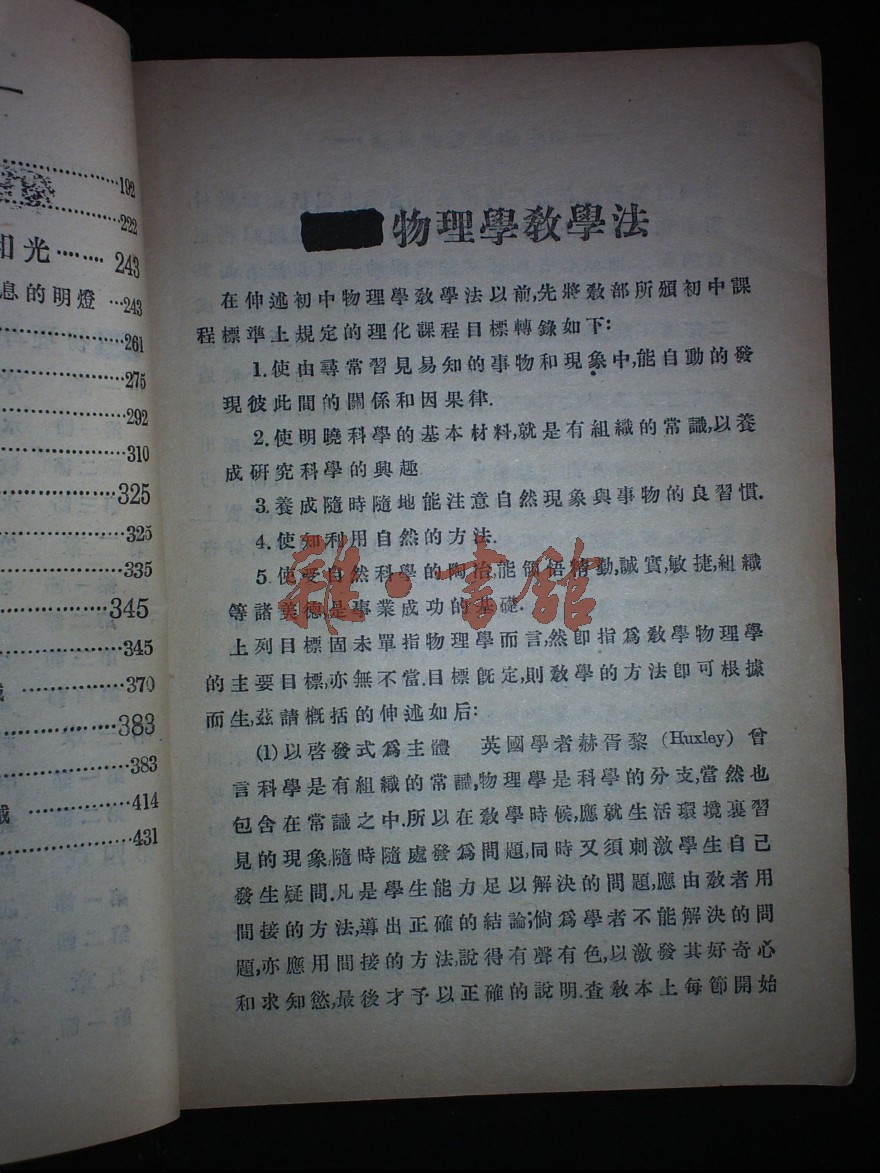 一
192
222
和光……243
息的明燈…243
261
275
292
310
325
325
335
345
345
370
383
383
414
431
物理學教學法
在伸述初中物理學教學法以前,先將教部所頒初中課
程標準上規定的理化課程目標轉錄如下:
1.使由尋常習見易知的事物和現象中,能自動的發
現彼此間的關係和因果律.
2.使明曉科學的基本材料,就是有組織的常識,以養
成研究科學的興趣
3.養成隨時隨地能注意自然現象與事物的良習慣.
4.使知利用自然的方法.
5.使受自然科學的陶冶,能領悟精勤,誠實,敏捷,組織
等諸美德,是事業成功的基礎.
上列目標固未單指物理學而言,然卽指爲教學物理學
的主要目標,亦無不當.目標旣定,則教學的方法卽可根據
而生,茲請概括的伸述如后:
(1)以啓發式爲主體 英國學者赫胥黎(Huxley)曾
言科學是有組織的常識,物理學是科學的分支,當然也
包含在常識之中.所以在教學時候,應就生活環境裏習
見的現象,隨時隨處發爲問題,同時又須刺激學生自己
發生疑問.凡是學生能力足以解決的問題,應由教者用
間接的方法,導出正確的結論;倘爲學者不能解決的問
題,亦應用間接的方法,說得有聲有色,以激發其好奇心
和求知慾,最後才予以正確的說明.查教本上每節開始
雜·書舘